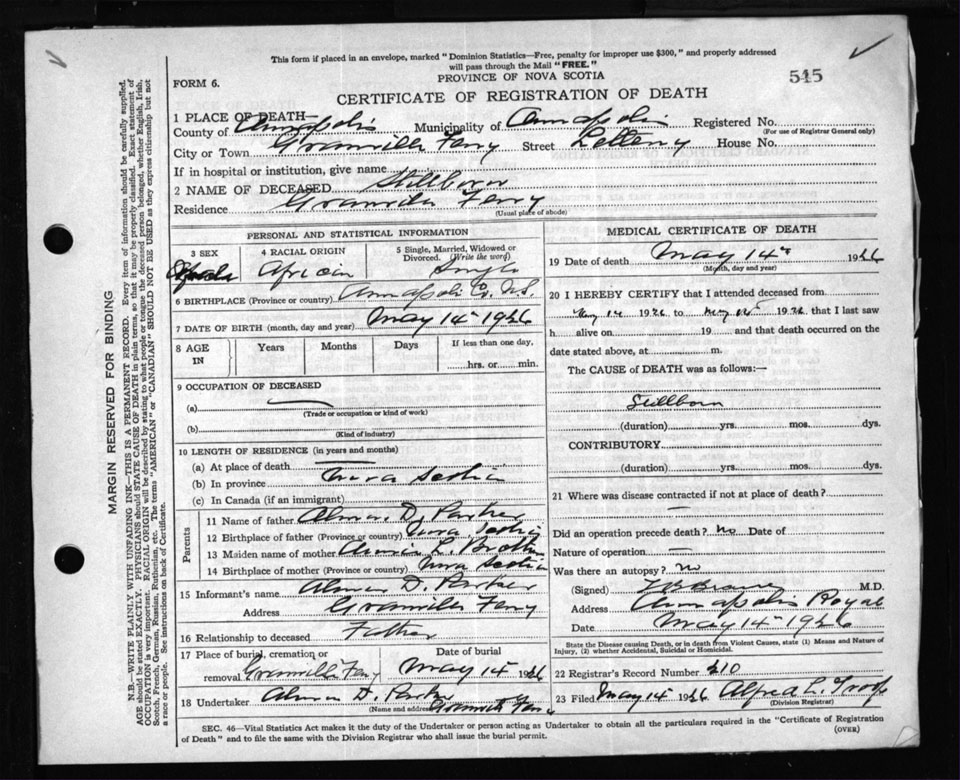 This form if placed in an envelope, marked "Dominion Statistics—Free, penalty for improper use $300," and properly addressed
will pass through the Mail "FREE."
PROVINCE OF NOVA SCOTIA
545
FORM 6.
CERTIFICATE OF REGISTRATION OF DEATH
1 PLACE OF DEATH—
County of Annapolis Municipality of Annapolis Registered No.
(For use of Registrar General only)
City or Town Granville Ferry Street House No.
If in hospital or institution, give name
2 NAME OF DECEASED Stillborn
Residence Granville Ferry
(Usual place of abode)
PERSONAL AND STATISTICAL INFORMATION
3 SEX
4 RACIAL ORIGIN African
5 Single, Married, Widowed or Divorced. (Write the word) Single
6 BIRTHPLACE (Province or country) Annapolis Co. N.S.
7 DATE OF BIRTH (month, day and year) May 14 1926
8 AGE IN Years Months Days If less than one day, hrs. or min.
9 OCCUPATION OF DECEASED
(a) —
(Trade or occupation or kind of work)
(b)
(Kind of industry)
10 LENGTH OF RESIDENCE (in years and months)
(a) At place of death —
(b) In province Nova Scotia
(c) In Canada (if an immigrant)
Parents
11 Name of father D. Parker
12 Birthplace of father (Province or country) Nova Scotia
13 Maiden name of mother
14 Birthplace of mother (Province or country) Nova Scotia
15 Informant's name D. Parker
Address Granville Ferry
16 Relationship to deceased Father
17 Place of burial, cremation or removal Granville Ferry Date of burial May 14 1926
18 Undertaker D. Parker
(Name and address) Granville Ferry
MEDICAL CERTIFICATE OF DEATH
19 Date of death May 14 1926
(Month, day and year)
20 I HEREBY CERTIFY that I attended deceased from
May 14 1926 to May 14 1926 that I last saw
h alive on 19 and that death occurred on the
date stated above, at m.
The CAUSE of DEATH was as follows:—
Stillborn
(duration) yrs. mos. dys.
CONTRIBUTORY
(duration) yrs. mos. dys.
21 Where was disease contracted if not at place of death?
—
Did an operation precede death? No Date of
Nature of operation —
Was there an autopsy? No
(Signed) M.D.
Address Annapolis Royal
Date May 14 1926
State the Disease causing Death, or in death from Violent Causes, state (1) Means and Nature of
Injury, (2) whether Accidental, Suicidal or Homicidal.
22 Registrar's Record Number 210
23 Filed May 14 1926 Alfred L.
(Division Registrar)
SEC. 46—Vital Statistics Act makes it the duty of the Undertaker or person acting as Undertaker to obtain all the particulars required in the "Certificate of Registration
of Death" and to file the same with the Division Registrar who shall issue the burial permit.
(OVER)
MARGIN RESERVED FOR BINDING
N.B.—WRITE PLAINLY WITH UNFADING INK—THIS IS A PERMANENT RECORD. Every item of information should be carefully supplied.
AGE should be stated EXACTLY. PHYSICIANS should STATE CAUSE OF DEATH in plain terms, so that it may be properly classified. Exact statement of
OCCUPATION is very important. RACIAL ORIGIN will be described by stating to what people or tongue the deceased person belonged, whether English, Irish,
Scotch, French, German, Russian, Ruthenian, etc. The terms "AMERICAN" or "CANADIAN" SHOULD NOT BE USED as they express citizenship but not
a race or people. See instructions on back of Certificate.